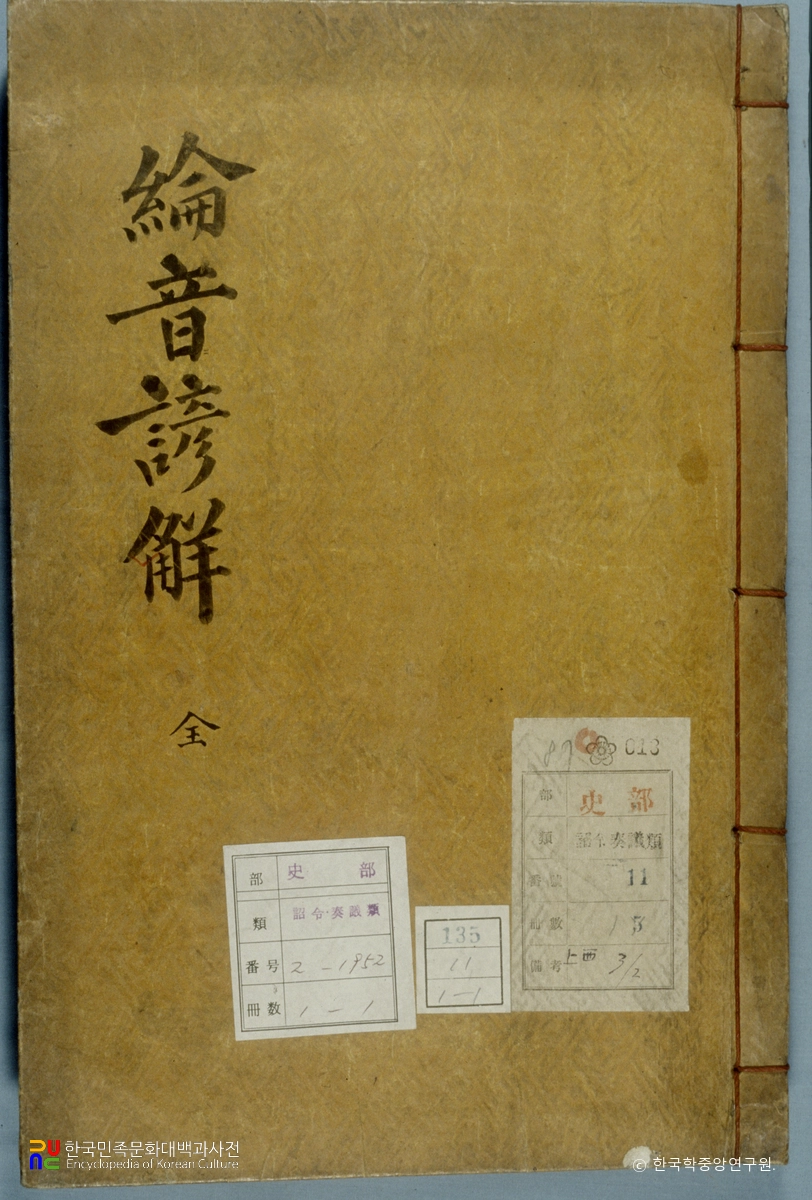 綸音諺解
全
部 史 部
類 詔令·奏議類
番号 2-1952
冊数 1-1
135
11
1-1
87 013
部 史 部
類 詔令奏議類
番號 11
冊數 1
備考 上西 3/2
한국민족문화대백과사전
Encyclopedia of Korean Culture
© 한국학중앙연구원.